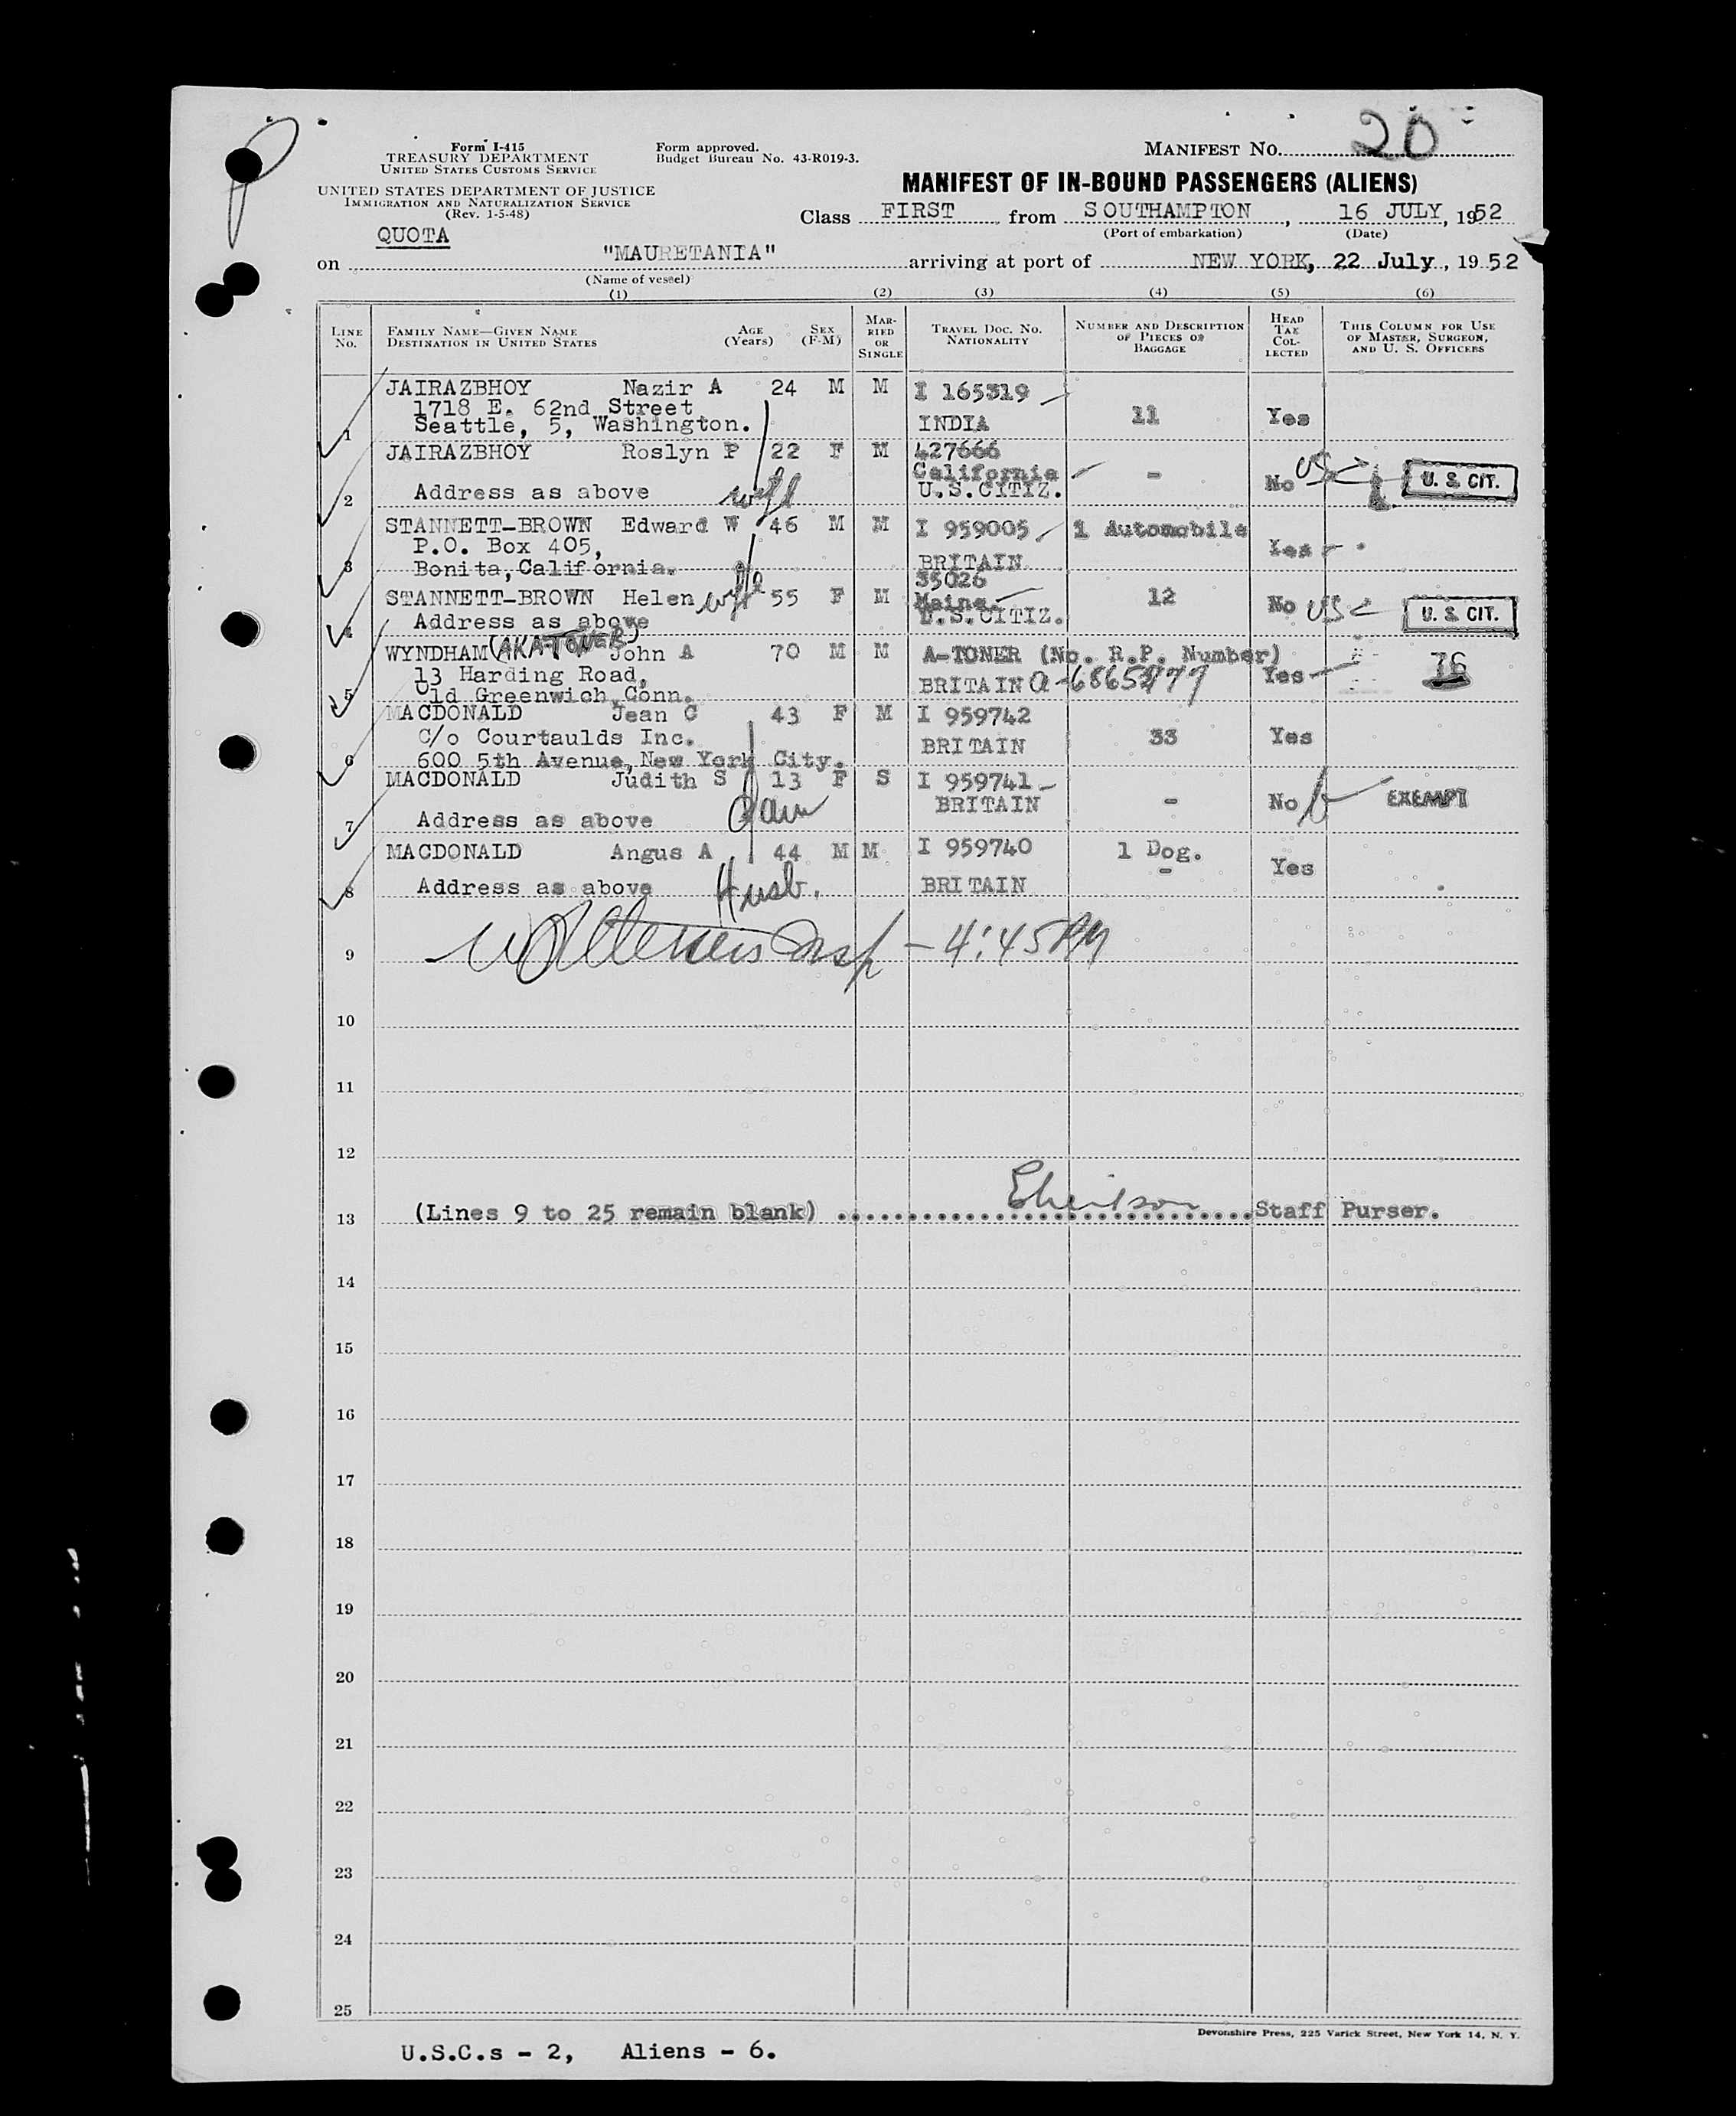 Form I-415
TREASURY DEPARTMENT
UNITED STATES CUSTOMS SERVICE
UNITED STATES DEPARTMENT OF JUSTICE
IMMIGRATION AND NATURALIZATION SERVICE
(Rev. 1-5-48)
Form approved.
Budget Bureau No. 43-R019-3.
MANIFEST NO. 20
MANIFEST OF IN-BOUND PASSENGERS (ALIENS)
Class FIRST from SOUTHAMPTON, 16 JULY, 1952
(Port of embarkation) (Date)
QUOTA
on "MAURETANIA" arriving at port of NEW YORK, 22 July, 1952
(Name of vessel)
(1) (2) (3) (4) (5) (6)
LINE NO.
FAMILY NAME—GIVEN NAME
DESTINATION IN UNITED STATES
AGE (Years)
SEX (F-M)
MARRIED OR SINGLE
TRAVEL DOC. NO. NATIONALITY
NUMBER AND DESCRIPTION OF PIECES OF BAGGAGE
HEAD TAX COLLECTED
THIS COLUMN FOR USE OF MASTER, SURGEON, AND U. S. OFFICERS
1 JAIRAZBHOY Nazir A 24 M M I 165319 11 Yes
1718 E. 62nd Street INDIA
Seattle, 5, Washington.
2 JAIRAZBHOY Roslyn P 22 F M 427666 - No USC U. S. CIT.
California
Address as above wife U.S.CITIZ.
3 STANNETT-BROWN Edward W 46 M M I 959005 1 Automobile Yes
P.O. Box 405, BRITAIN
Bonita, California.
4 STANNETT-BROWN Helen wife 55 F M 35026 12 No USC U. S. CIT.
Maine.
Address as above U.S.CITIZ.
5 WYNDHAM (AKA-TONER) John A 70 M M A-TONER (No. R.P. Number) Yes 76
13 Harding Road, BRITAIN
Old Greenwich, Conn.
6 MACDONALD Jean C 43 F M I 959742 33 Yes
C/o Courtaulds Inc. BRITAIN
600 5th Avenue, New York City.
7 MACDONALD Judith S 13 F S I 959741 - No EXEMPT
BRITAIN
Address as above dau
8 MACDONALD Angus A 44 M M I 959740 1 Dog. - Yes
Address as above Husb. BRITAIN
9 Insp - 4:45 PM
10
11
12
13 (Lines 9 to 25 remain blank) Staff Purser.
14
15
16
17
18
19
20
21
22
23
24
25
Devonshire Press, 225 Varick Street, New York 14, N. Y.
U.S.C.s - 2, Aliens - 6.